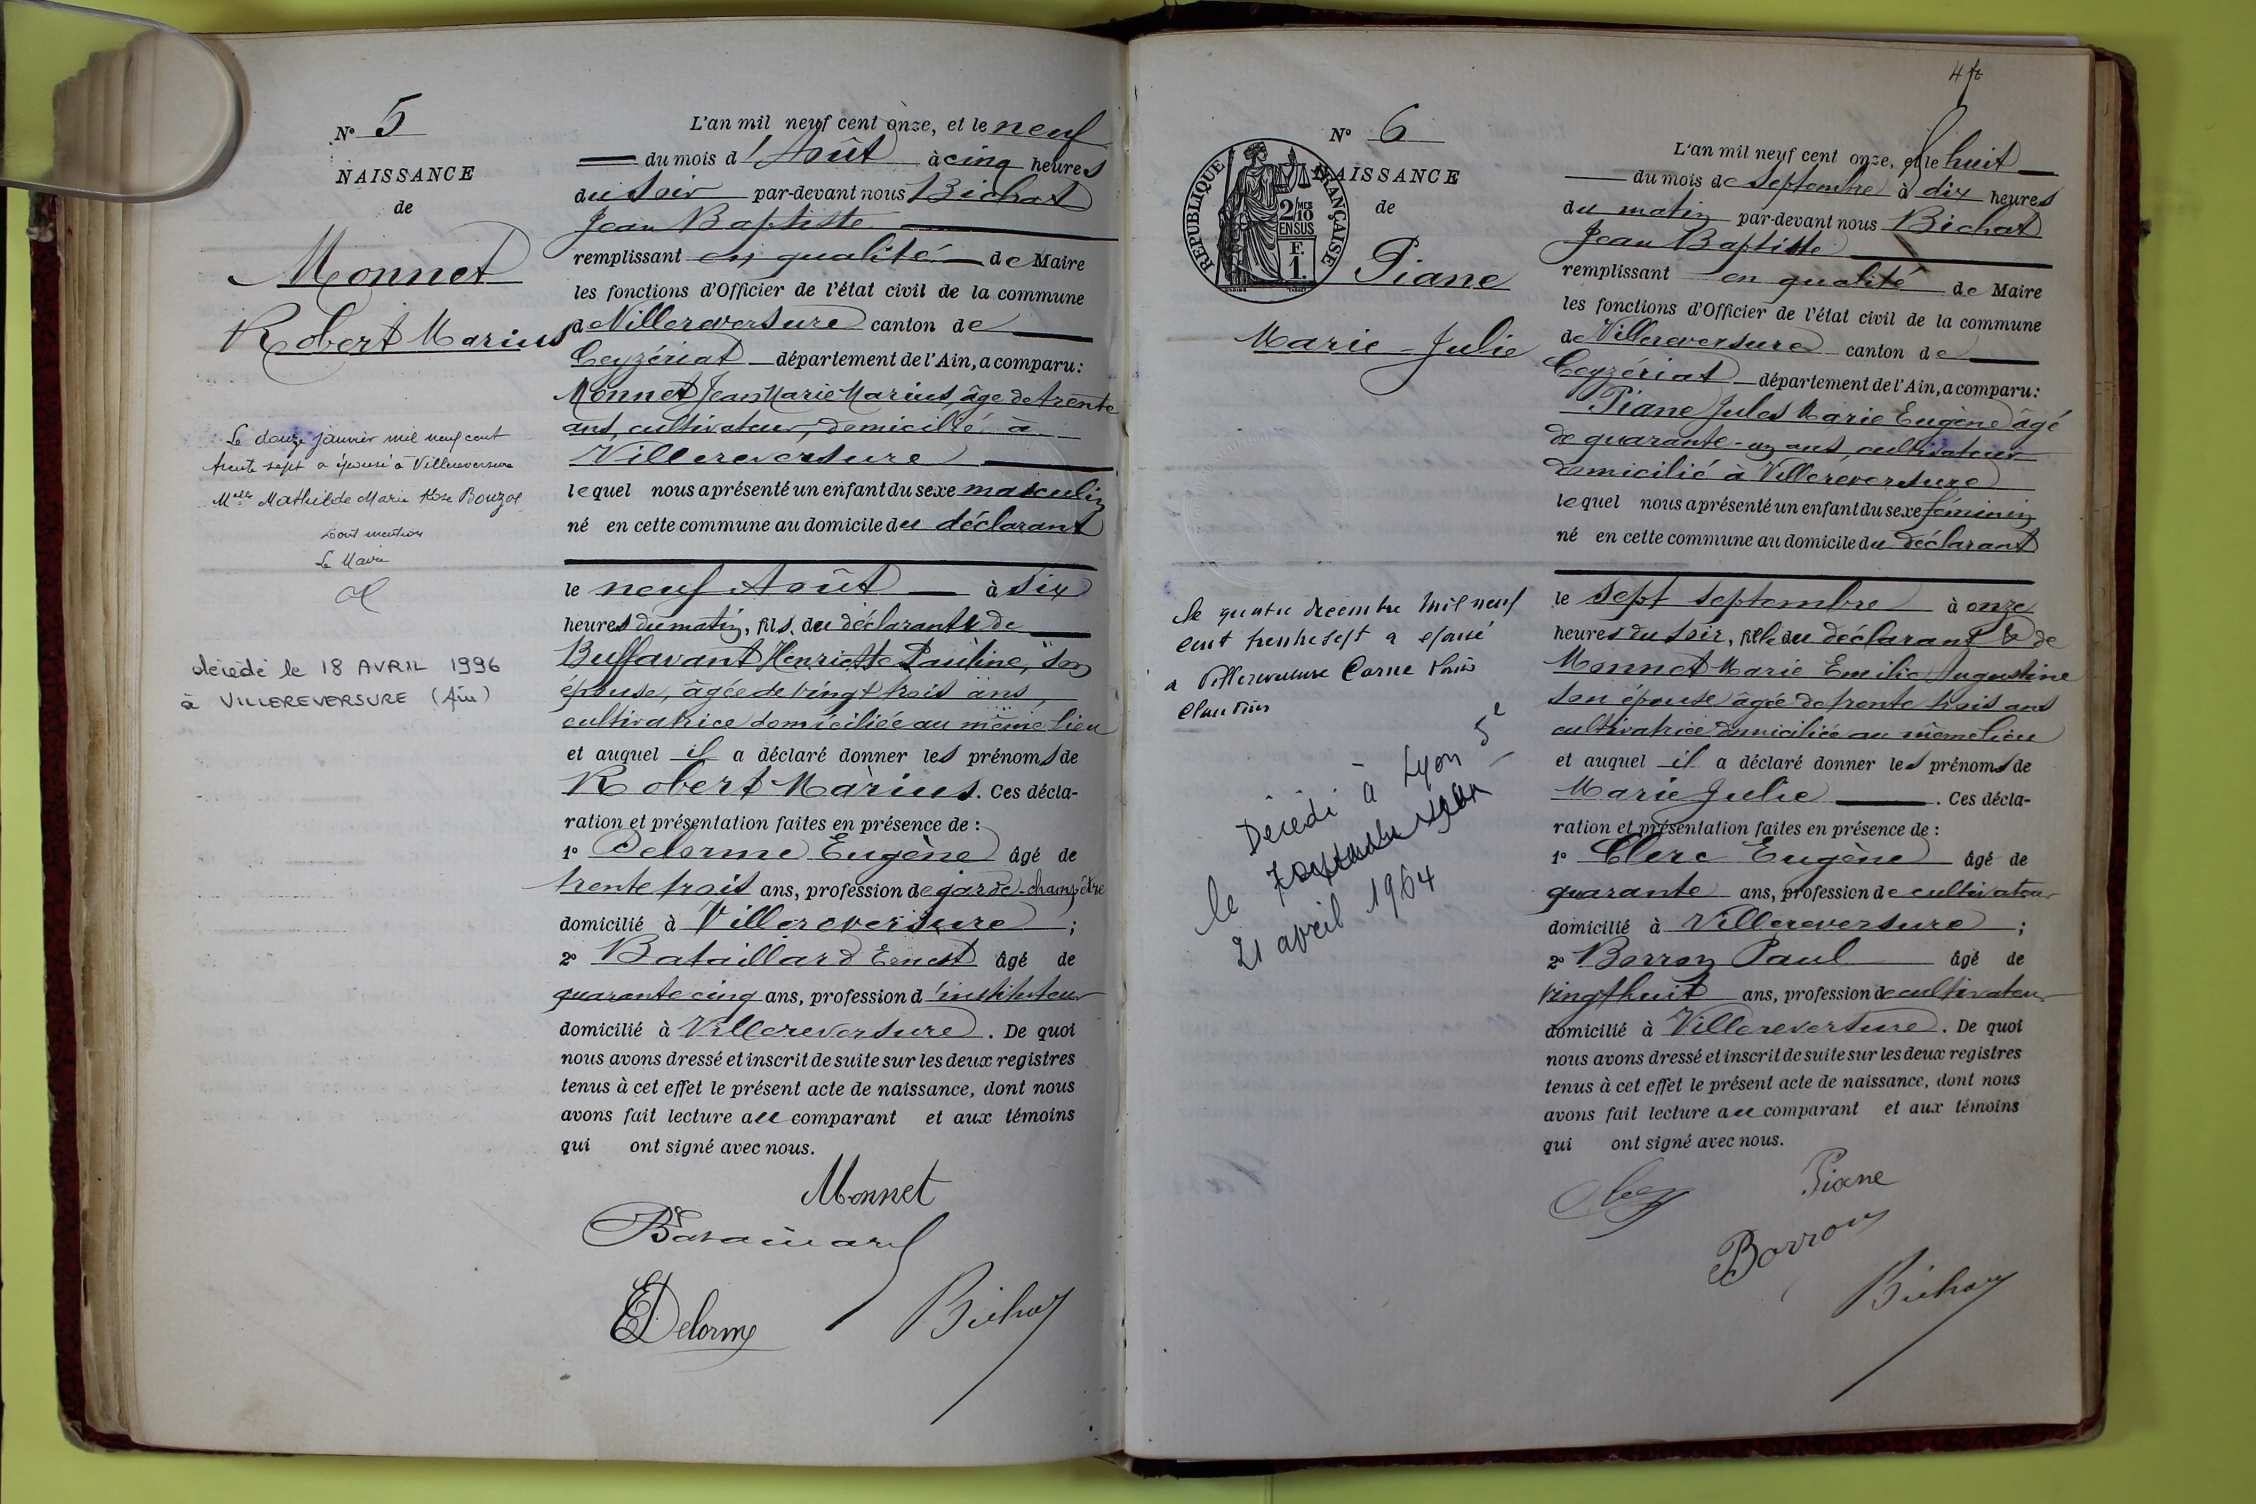 N° 5
NAISSANCE
de
Monnet
Robert Marius
Le douze janvier mil neuf cent
trente sept a épousé à Villereversure
Melle Mathilde Marie Rose Bouzol
Dont mention
Le Maire
décédé le 18 AVRIL 1996
à VILLEREVERSURE (Ain)
L'an mil neuf cent onze, et le neuf
du mois d'Août à cinq heures
du soir par-devant nous Bichat
Jean Baptiste
remplissant en qualité de Maire
les fonctions d'Officier de l'état civil de la commune
de Villereversure canton de
Ceyzériat département de l'Ain, a comparu :
Monnet Jean Marie Marius, âgé de trente
ans, cultivateur, domicilié à
Villereversure
lequel nous a présenté un enfant du sexe masculin
né en cette commune au domicile du déclarant
le neuf Août à six
heures du matin, fils du déclarant & de
Buffavant Henriette Pauline, son
épouse, âgée de vingt trois ans,
cultivatrice domiciliée au même lieu
et auquel il a déclaré donner les prénoms de
Robert Marius. Ces décla-
ration et présentation faites en présence de :
1° Delorme Eugène âgé de
trente trois ans, profession de garde-champêtre
domicilié à Villereversure ;
2° Bataillard Ernest âgé de
quarante cinq ans, profession d'instituteur
domicilié à Villereversure. De quoi
nous avons dressé et inscrit de suite sur les deux registres
tenus à cet effet le présent acte de naissance, dont nous
avons fait lecture au comparant et aux témoins
qui ont signé avec nous.
Monnet
Bataillard
EDelorme
Bichat
4 ft
N° 6
NAISSANCE
de
RÉPUBLIQUE FRANÇAISE
2/10
MES
EN SUS
F.
1.
Piane
Marie-Julie
Le quatre décembre mil neuf
cent trente sept a épousé
à Villereversure Carne Louis
Claudius
Décédé à Lyon 5e
le 7 septembre
21 avril 1964
L'an mil neuf cent onze, et le huit
du mois de septembre à dix heures
du matin par-devant nous Bichat
Jean Baptiste
remplissant en qualité de Maire
les fonctions d'Officier de l'état civil de la commune
de Villereversure canton de
Ceyzériat département de l'Ain, a comparu :
Piane Jules Marie Eugène âgé
de quarante-un ans, cultivateur
domicilié à Villereversure
lequel nous a présenté un enfant du sexe féminin
né en cette commune au domicile du déclarant
le sept septembre à onze
heures du soir, fille du déclarant & de
Monnet Marie Emilie Augustine
son épouse âgée de trente trois ans
cultivatrice domiciliée au même lieu
et auquel il a déclaré donner les prénoms de
Marie Julie. Ces décla-
ration et présentation faites en présence de :
1° Clerc Eugène âgé de
quarante ans, profession de cultivateur
domicilié à Villereversure ;
2° Borron Paul âgé de
vingt huit ans, profession de cultivateur
domicilié à Villereversure. De quoi
nous avons dressé et inscrit de suite sur les deux registres
tenus à cet effet le présent acte de naissance, dont nous
avons fait lecture au comparant et aux témoins
qui ont signé avec nous.
Piane
Borron
Bichat